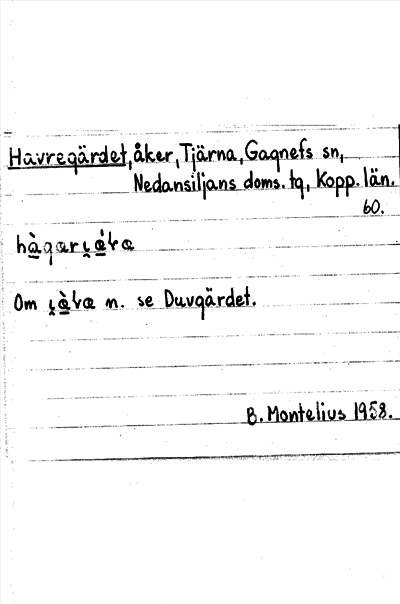 Havregärdet, åker, Tjärna, Gagnefs sn,
Nedansiljans doms. tg, Kopp. län.
60.
Om n. se Duvgärdet.
B. Montelius 1958.